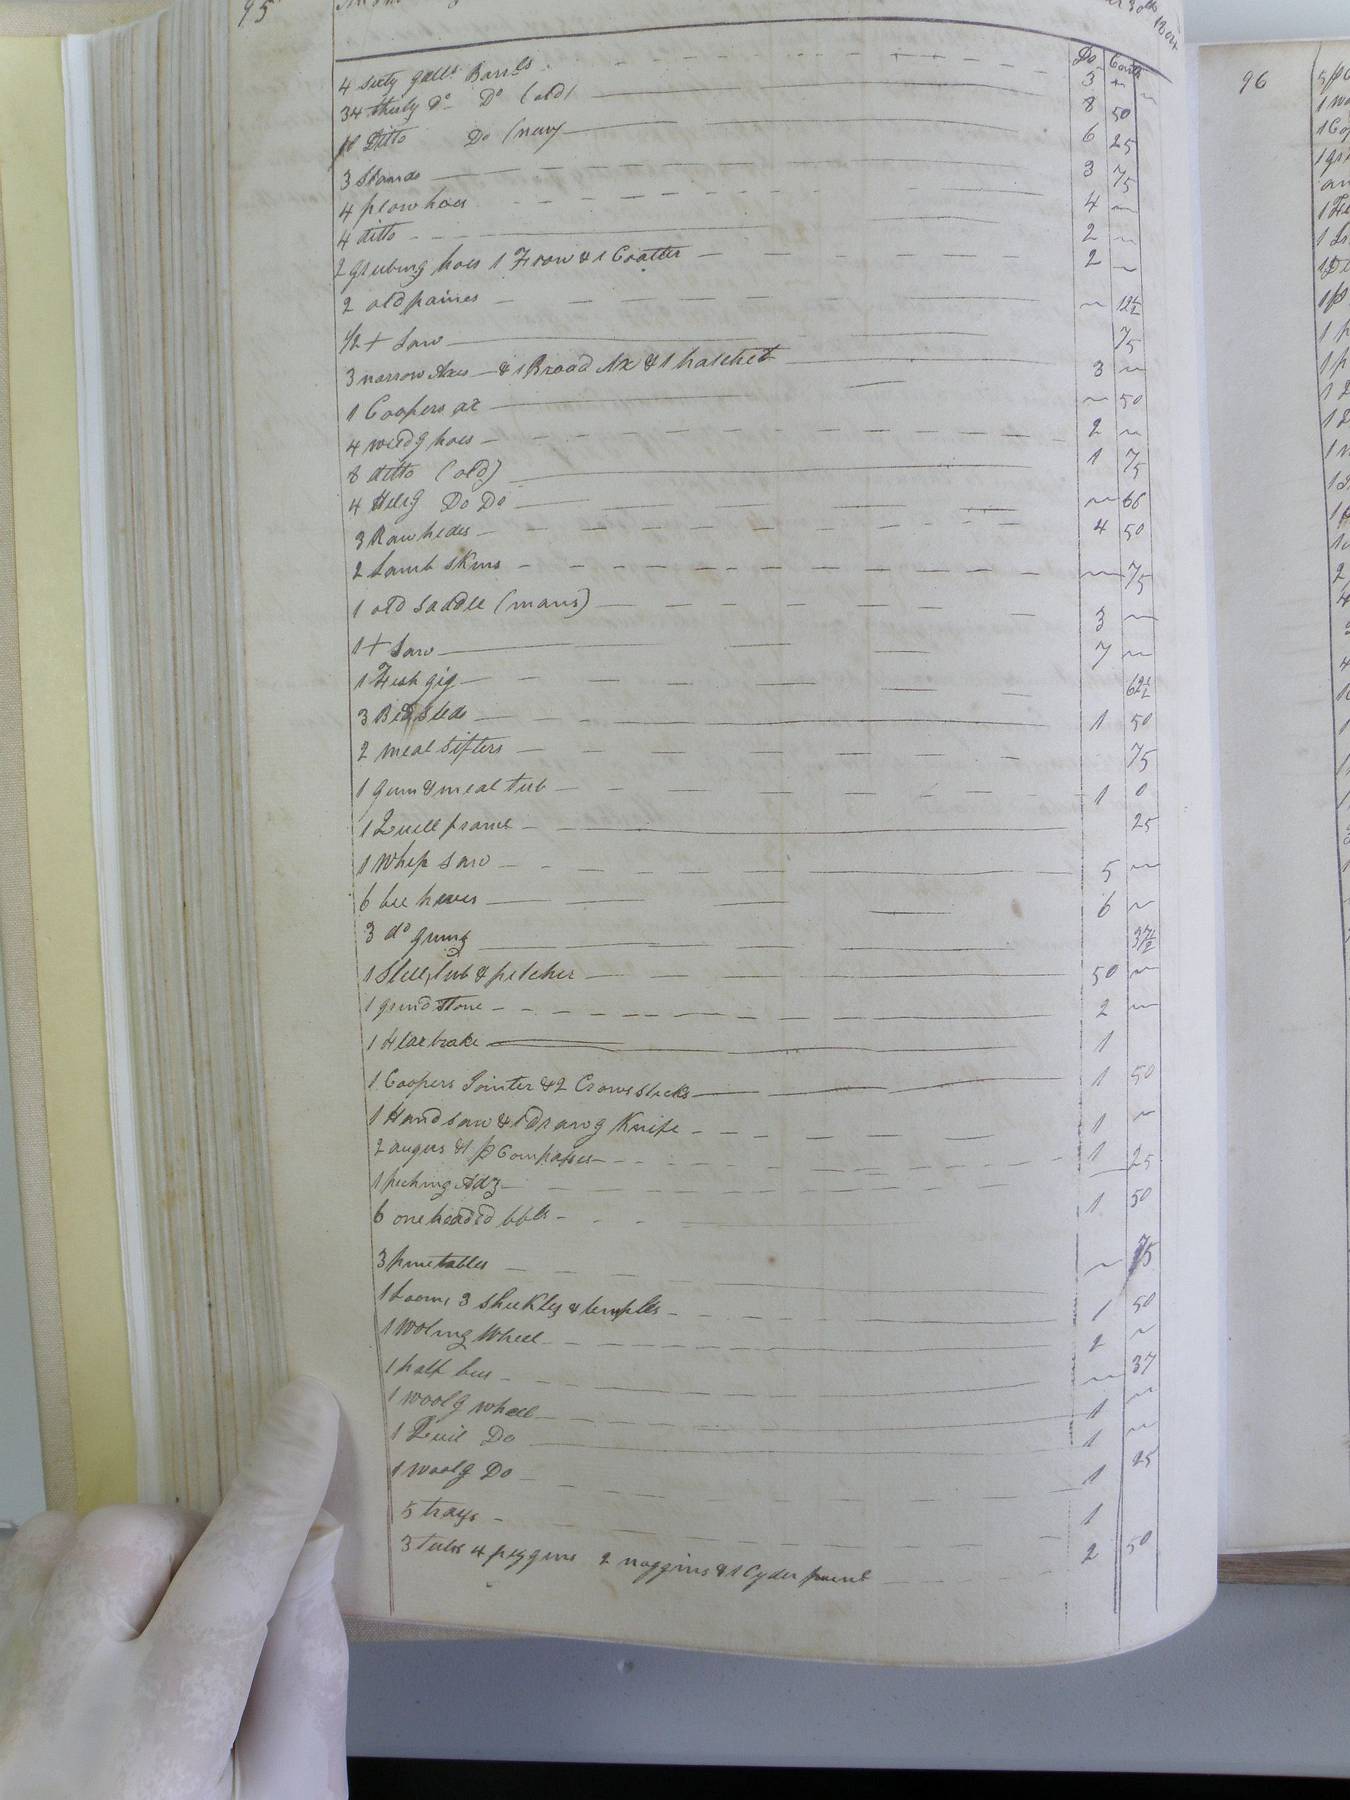 95
30th
Do Cents
4 sixty galls Barrels 3 ~
34 thirty Do Do (old) 8 50
18 Ditto Do (new) 6 25
3 Stands 3 75
4 plow hoes 4 ~
4 ditto 2 ~
2 grubing hoes 1 Frow & 1 Coatter 2 ~
2 old paines ~ 12½
½ + Saw 75
3 narrow Axes & 1 Broad Ax & 1 hatchet 3 ~
1 Coopers ax ~ 50
4 weedg hoes 2 ~
8 ditto (old) 1 75
4 Hillg Do Do ~ 66
3 Raw hides 4 50
2 Lamb skins ~ 75
1 old saddle (mans) 3 ~
1 + Saw 7 ~
1 Fish gig 62½
3 Bedsteds 1 50
2 meal sifters 75
1 gum & meal tub 1 0
1 Quill frame 25
1 Whip Saw 5 ~
6 bee hives 6 ~
3 do gums 37½
1 Still, tub & pitcher 50 ~
1 grind stone 2 ~
1 Flax brake 1
1 Coopers Jointer & 2 Crows stocks 1 50
1 Hand saw & 1 Drawg Knife 1 ~
2 augers & 1 p Compasses 1 25
1 pecking Adz
6 one headed bbls 1 50
3 pine tables ~ 75
1 Loom, 3 shickles & temples 1 50
1 Woling Wheel 2 ~
1 half bus ~ 37
1 woolg wheel 1 ~
1 Quil Do 1 ~
1 woolg Do 1 25
5 trays 1
3 tubs 4 piggins 2 noggins & 1 Cyder 2 50
96